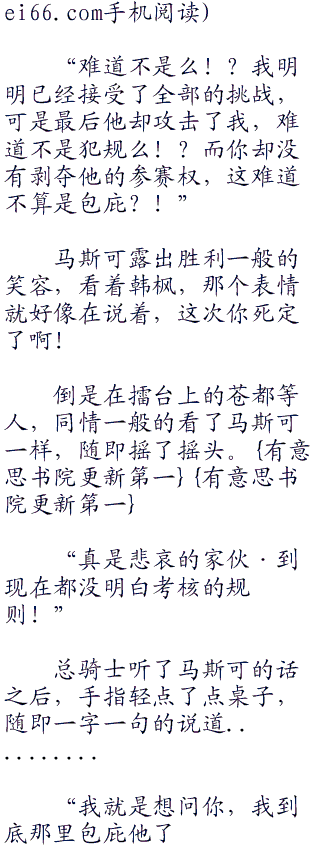 ei66.com手机阅读)
“难道不是么！？我明
明已经接受了全部的挑战，
可是最后他却攻击了我，难
道不是犯规么！？而你却没
有剥夺他的参赛权，这难道
不算是包庇？！”
马斯可露出胜利一般的
笑容，看着韩枫，那个表情
就好像在说着，这次你死定
了啊！
倒是在擂台上的苍都等
人，同情一般的看了马斯可
一样，随即摇了摇头。{有意
思书院更新第一}{有意思书
院更新第一}
“真是悲哀的家伙·到
现在都没明白考核的规
则！”
总骑士听了马斯可的话
之后，手指轻点了点桌子，
随即一字一句的说道..
........
“我就是想问你，我到
底那里包庇他了